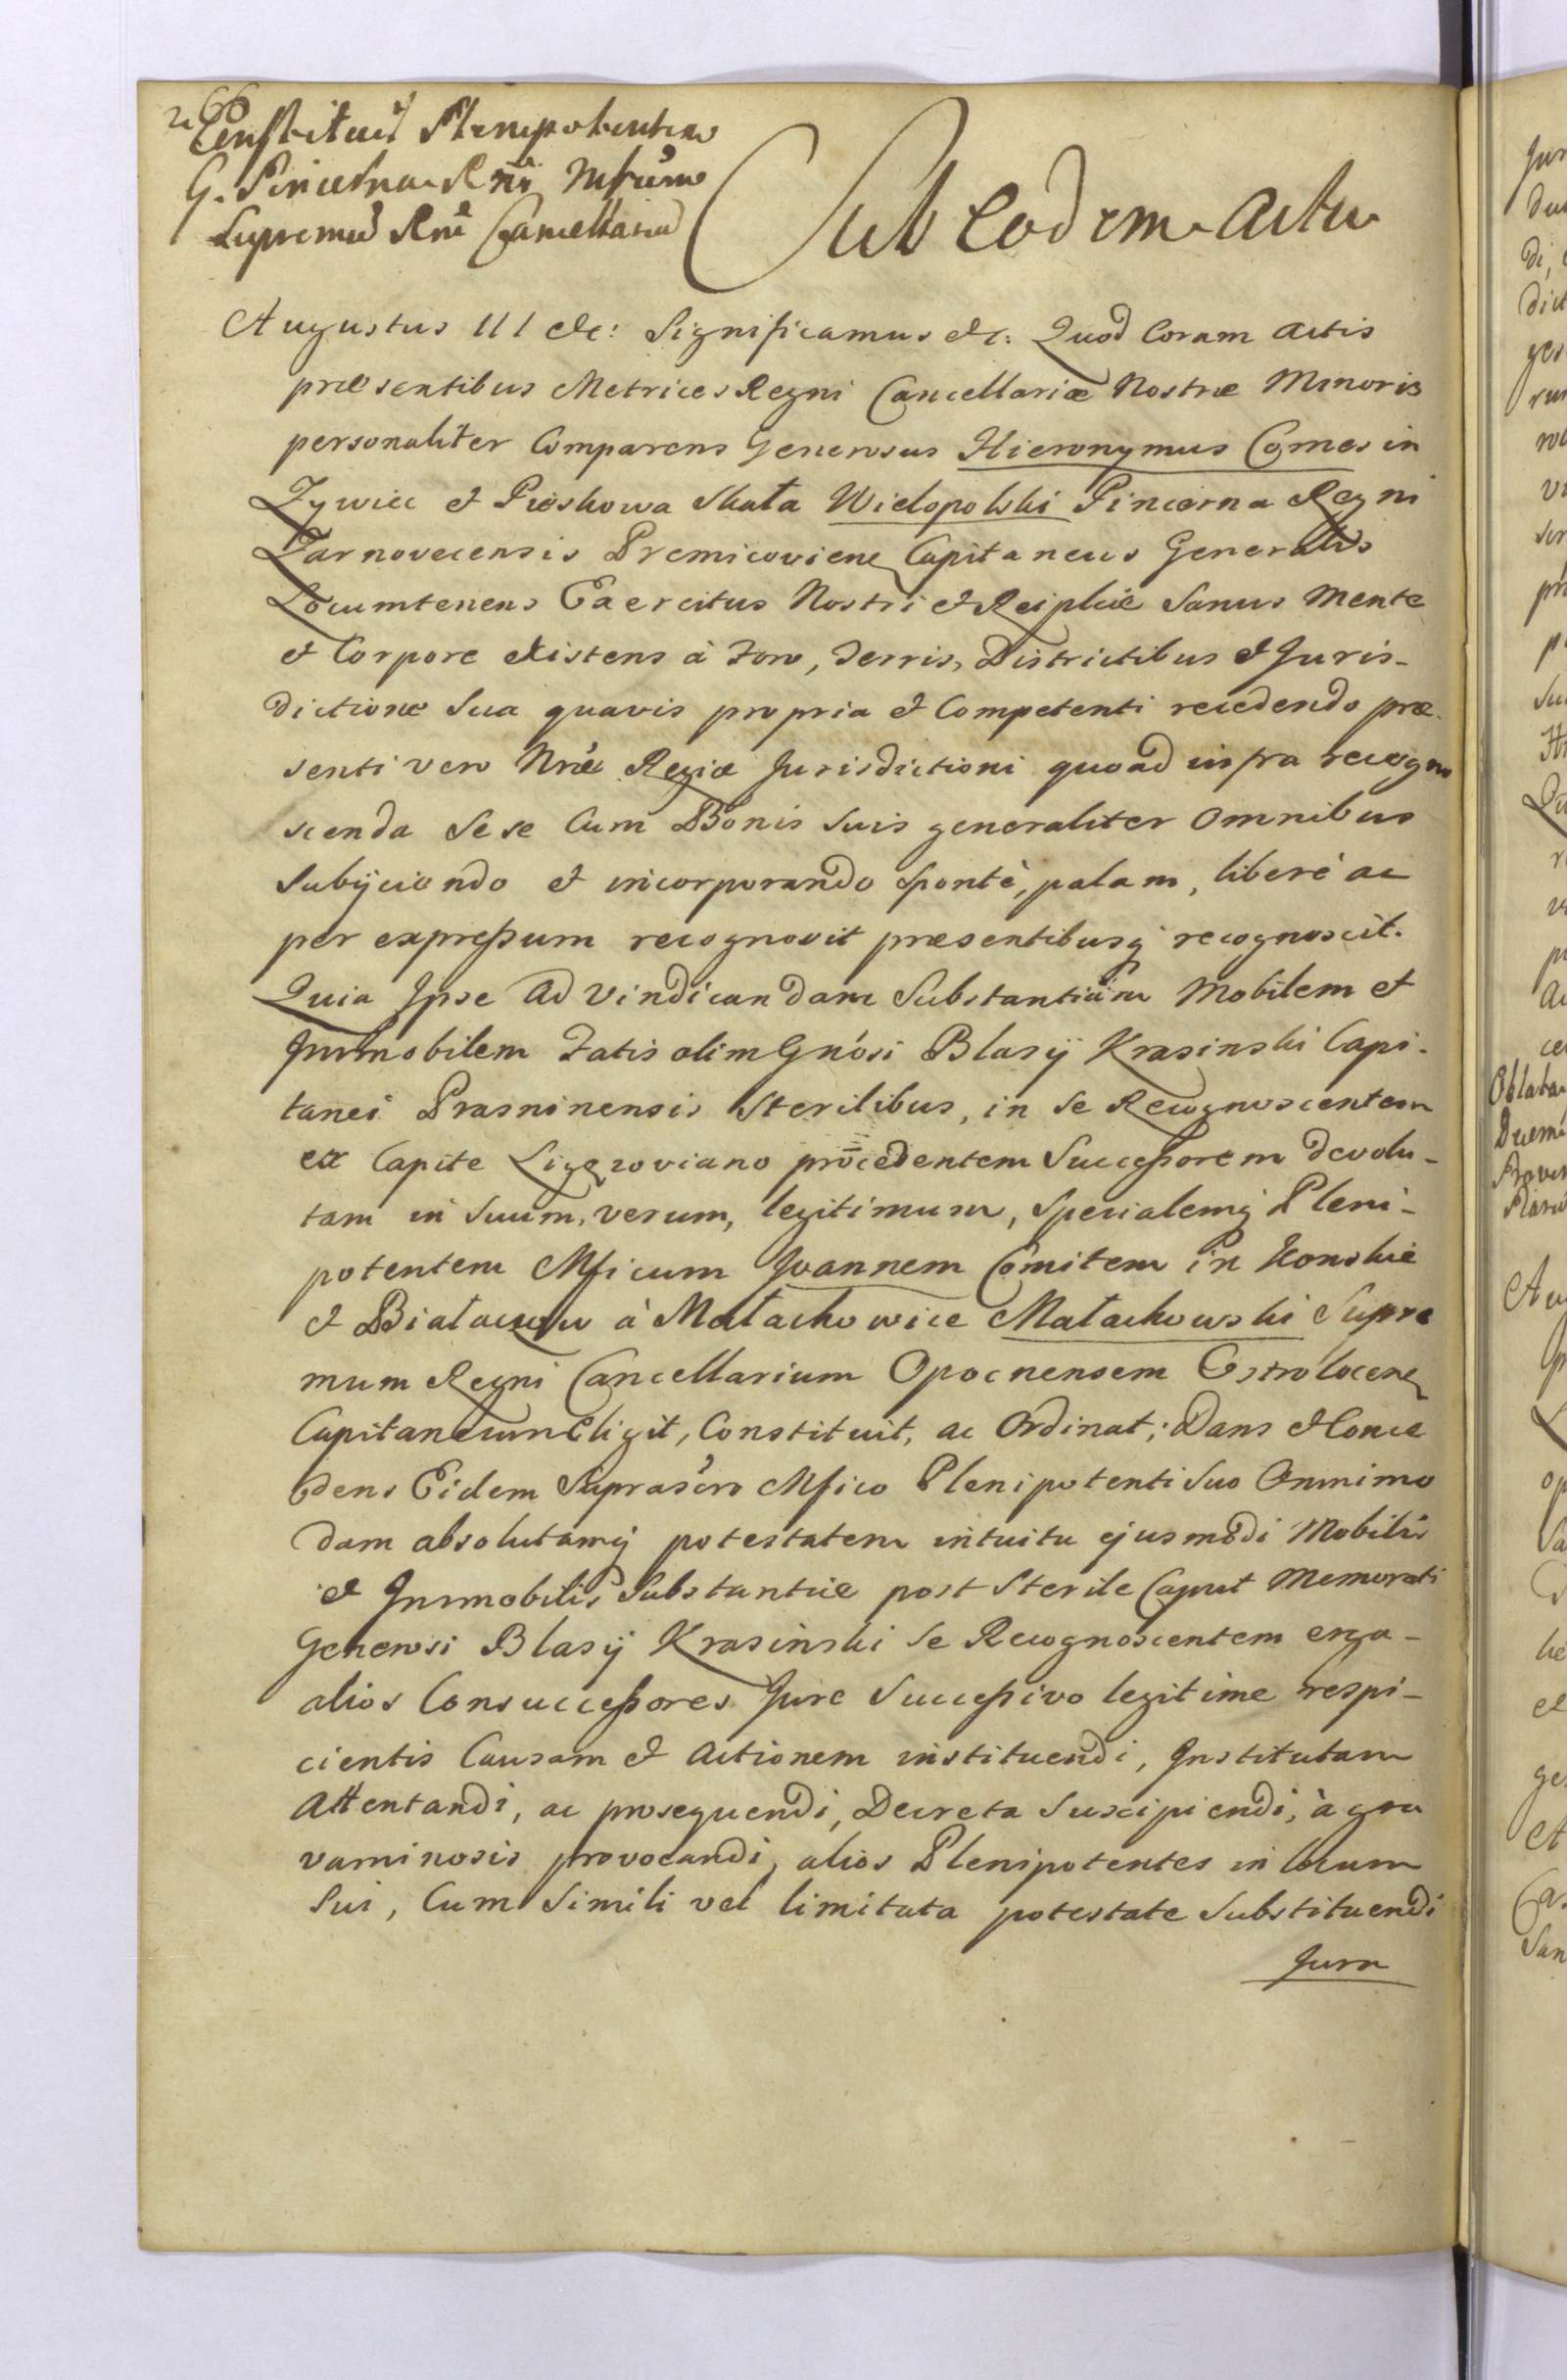 266
Constituit Plenipotentem
G. Pincerna Rni Mfcum
Supremum Rni Cancellarium
Sub Eodem Actu
Augustus III etc: Significamus etc: Quod Coram Actis
præsentibus Metrices Regni Cancellariæ Nostræ Minoris
personaliter Comparens Generosus Hieronymus Comes in
Zywiec et Pieskowa Skała Wielopolski Pincerna Regni
Zarnovecensis Premicoviens Capitaneus Generalis
Locumtenens Exercitus Nostri et Reiplicæ Sanus Mente
et Corpore existens à Foro, Terris, Districtibus et Juris-
dictione Sua quavis propria et Competenti recedendo præ-
senti vero Nræ Regiæ Jurisdictioni quoad infra recogno
scenda Sese Cum Bonis Suis generaliter Omnibus
Subijciendo et incorporando sponte, palam, liberè ac
per expressum recognovit præsentibusq recognoscit.
Quia Ipse Ad Vindicandam Substantiam Mobilem et
Immobilem Fatis olim Gnosi Blasij Krasinski Capi-
tanei Prasninensis Sterilibus, in Se Recognoscentem
ex Capite Ligezoviano procedentem Successorem devolu-
tam in Suum, verum, legitimum, Specialemq Pleni-
potentem Mficum Joannem Comitem in Konskie
et Białaczow à Małachowice Małachowski Supre
mum Regni Cancellarium Opocnensem Ostrołocens
Capitaneum Eligit, Constituit, ac Ordinat; Dans et Conce
dens Eidem Suprascro Mfico Plenipotenti Suo Omnimo
dam absolutamq potestatem intuitu ejusmodi Mobilis
et Immobilis Substantiæ post Sterile Caput Memorati
Generosi Blasij Krasinski Se Recognoscentem erga-
alios Consuccessores Jure Successivo legitime respi-
cientis Causam et Actionem instituendi, Institutam
Attentandi, ac prosequendi, Decreta Suscipiendi, à gra
vaminosis provocandi, alios Plenipotentes in locum
Sui, Cum Simili vel limitata potestate Substituendi
Jura